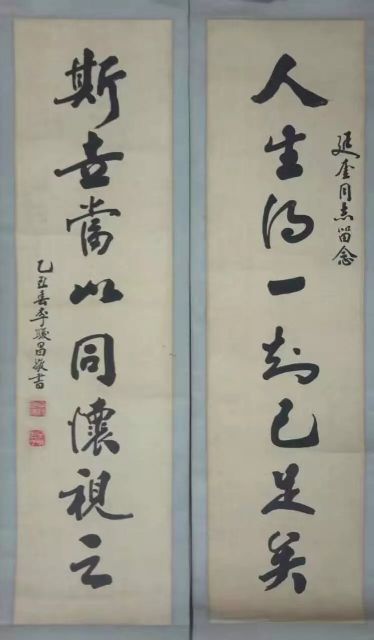 延奎同志留念
人生得一知己足矣
斯世當以同懷視之
乙丑春李聯昌敬書